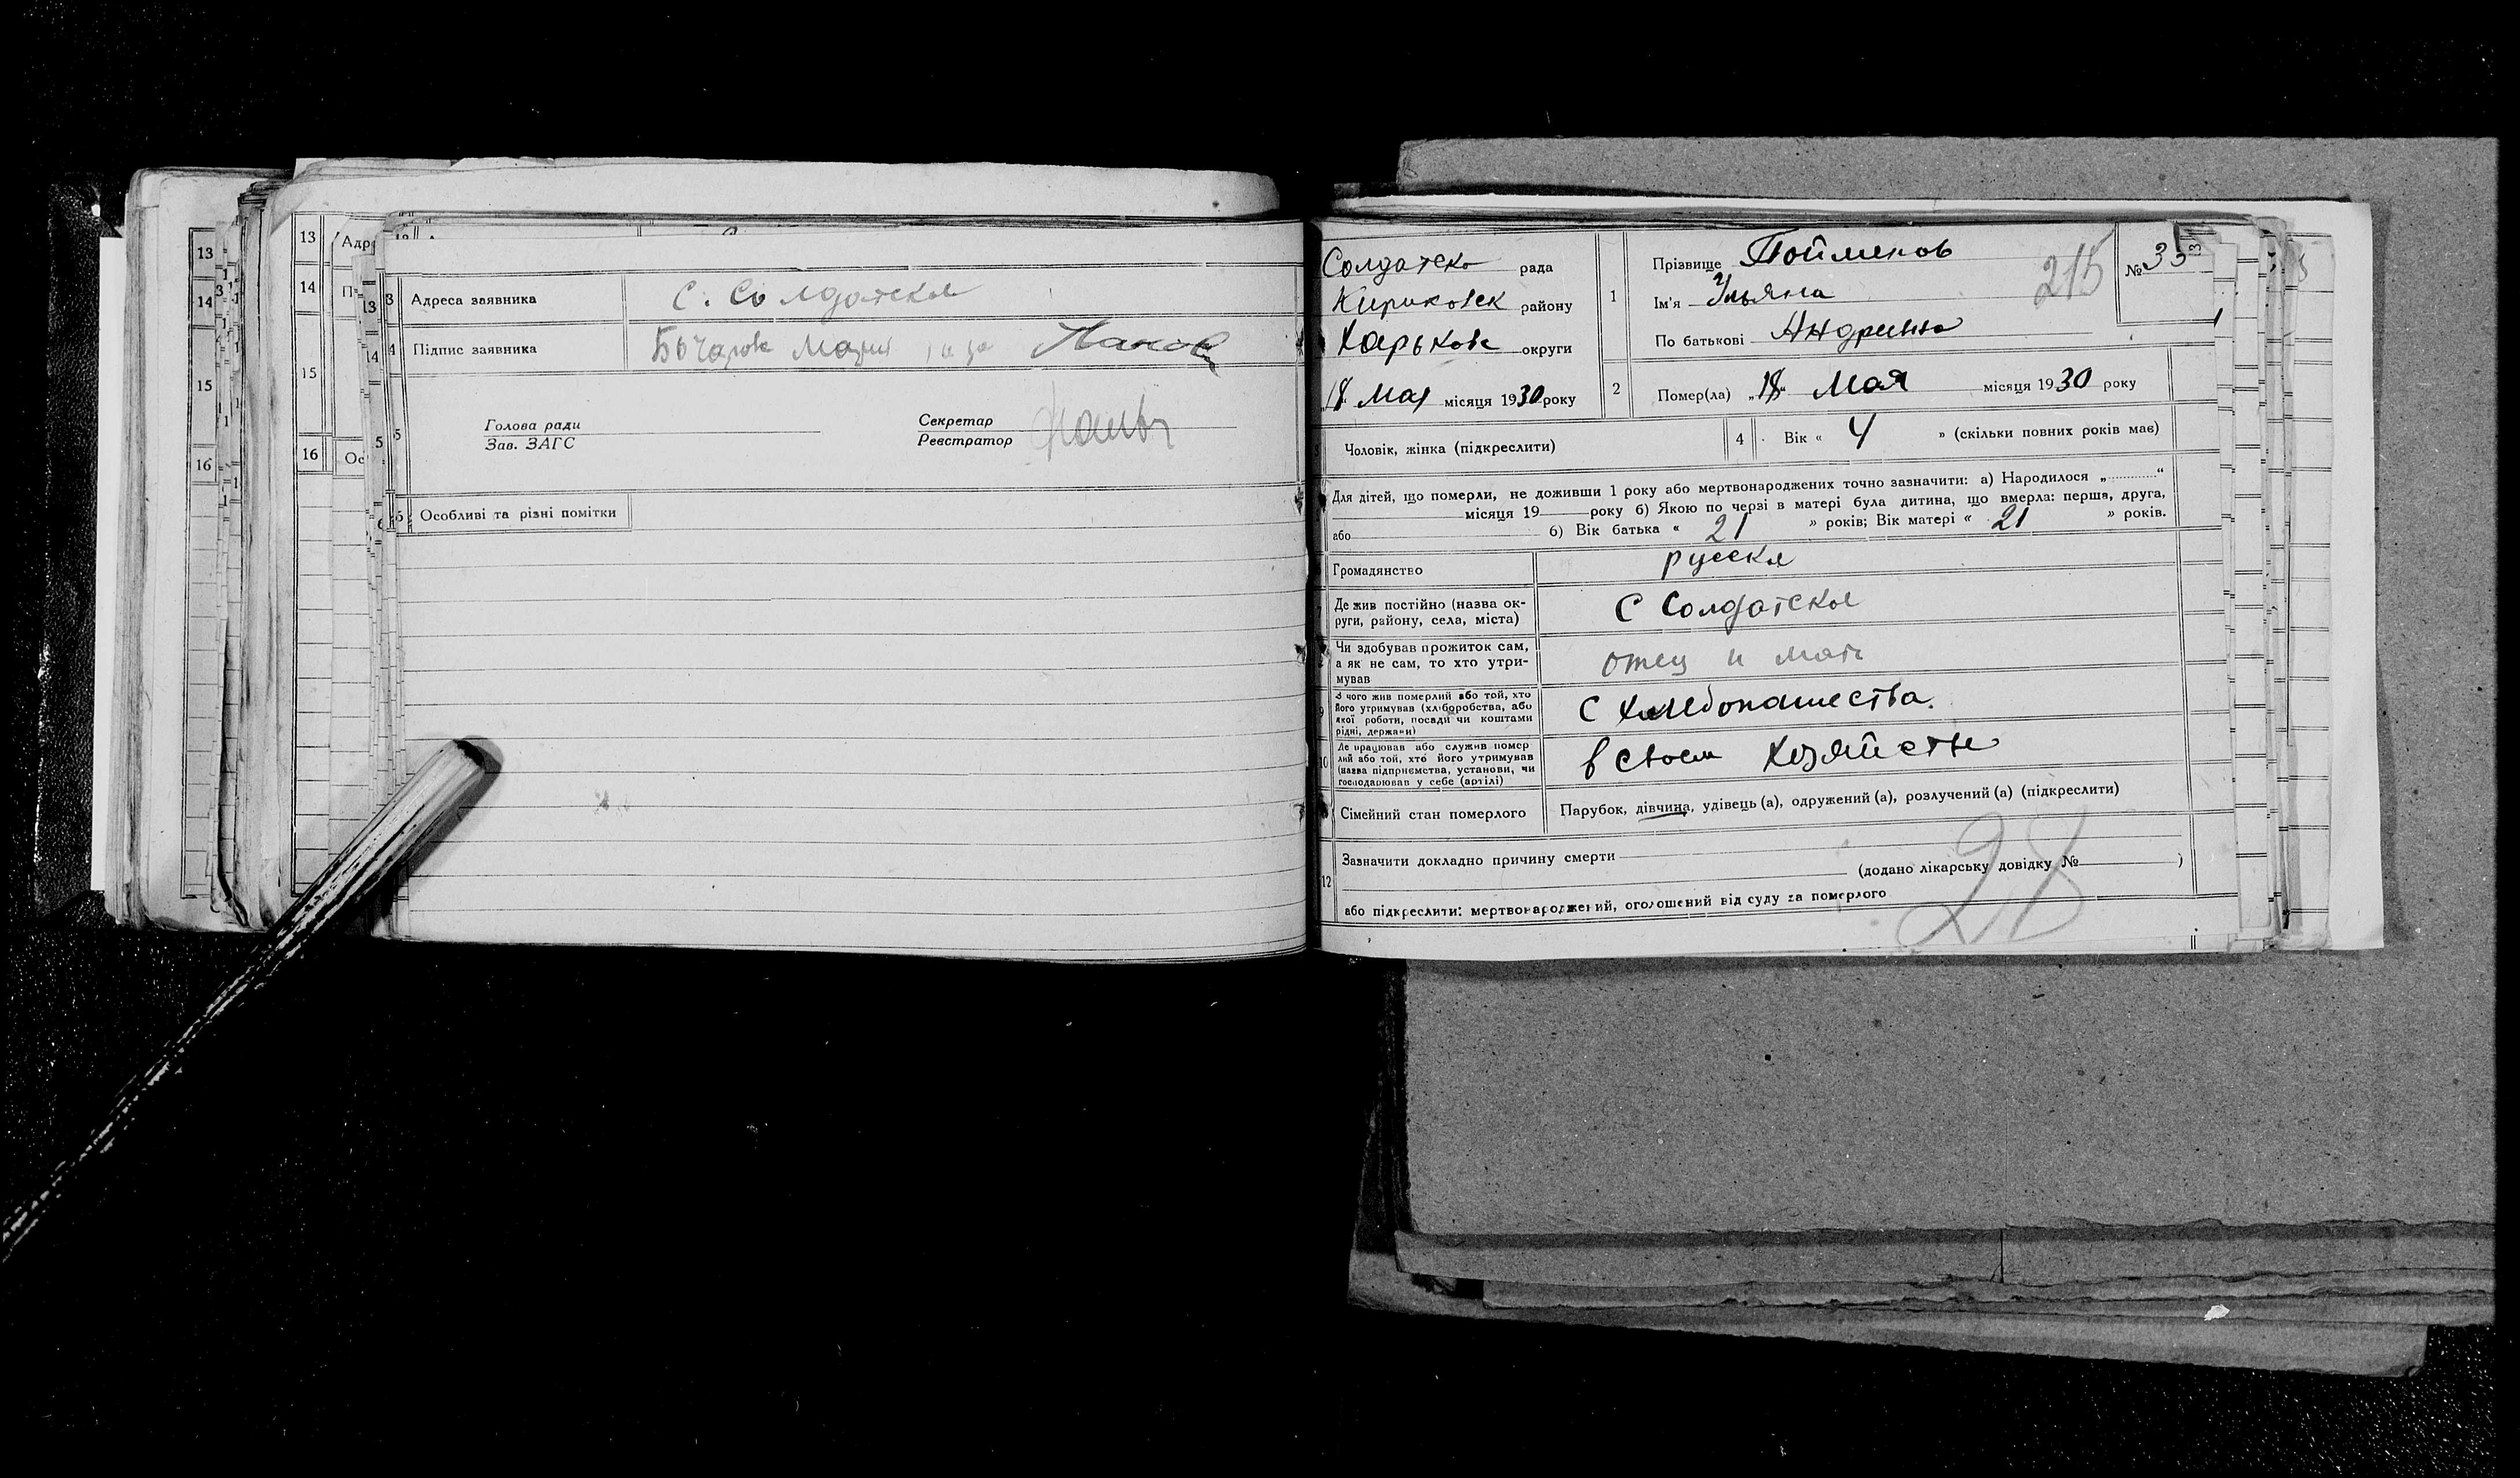 13
14
15
16
13
14
15
16
Адреса заявника с. Солдатское
Підпис заявника Бочарова Мария Панов
Голова ради
Зав. ЗАГС
Секретар
Реєстратор
Особливі та різні помітки
Солдатско рада
Кириковск району
Харькове округи
18 Мая місяця 1930 року
1
Прізвище Пойменов
Ім'я Ульяна
По батькові Андрипно
215
№ 35
2
Помер(ла) „18“ Мая місяця 1930 року
Чоловік, жінка (підкреслити)
4
Вік « 4 » (скільки повних років має)
Для дітей, що померли, не доживши 1 року або мертвонароджених точно зазначити: а) Народилося „ “
місяця 19 року б) Якою по черзі в матері була дитина, що вмерла: перша, друга,
або б) Вік батька « 21 » років; Вік матері « 21 » років.
Громадянство русскя
Де жив постійно (назва ок-
руги, району, села, міста)
с Солдатское
Чи здобував прожиток сам,
а як не сам, то хто утри-
мував
отец и мать
З чого жив померлий або той, хто
його утримував (хліборобства, або
якої роботи, посади чи коштами
рідні, держави)
с хлебопашества.
10
Де працював або служив помер
лий або той, хто його утримував
(назва підприємства, установи, чи
господарював у себе (артілі)
в своем хозяйстве
Сімейний стан померлого
Парубок, дівчина, удівець (а), одружений (а), розлучений (а) (підкреслити)
12
Зазначити докладно причину смерти
(додано лікарську довідку № )
або підкреслити: мертвонароджений, оголошений від суду за померлого
28